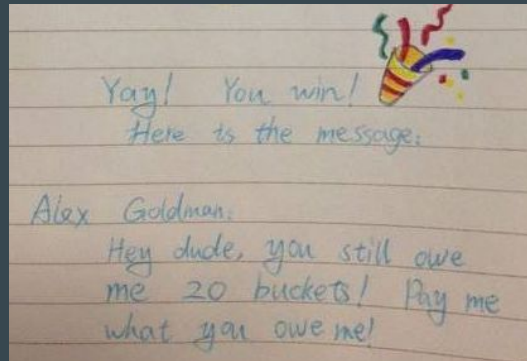 Yay! You win!
Here is the message:
Alex Goldman:
Hey dude, you still owe
me 20 buckets! Pay me
what you owe me!